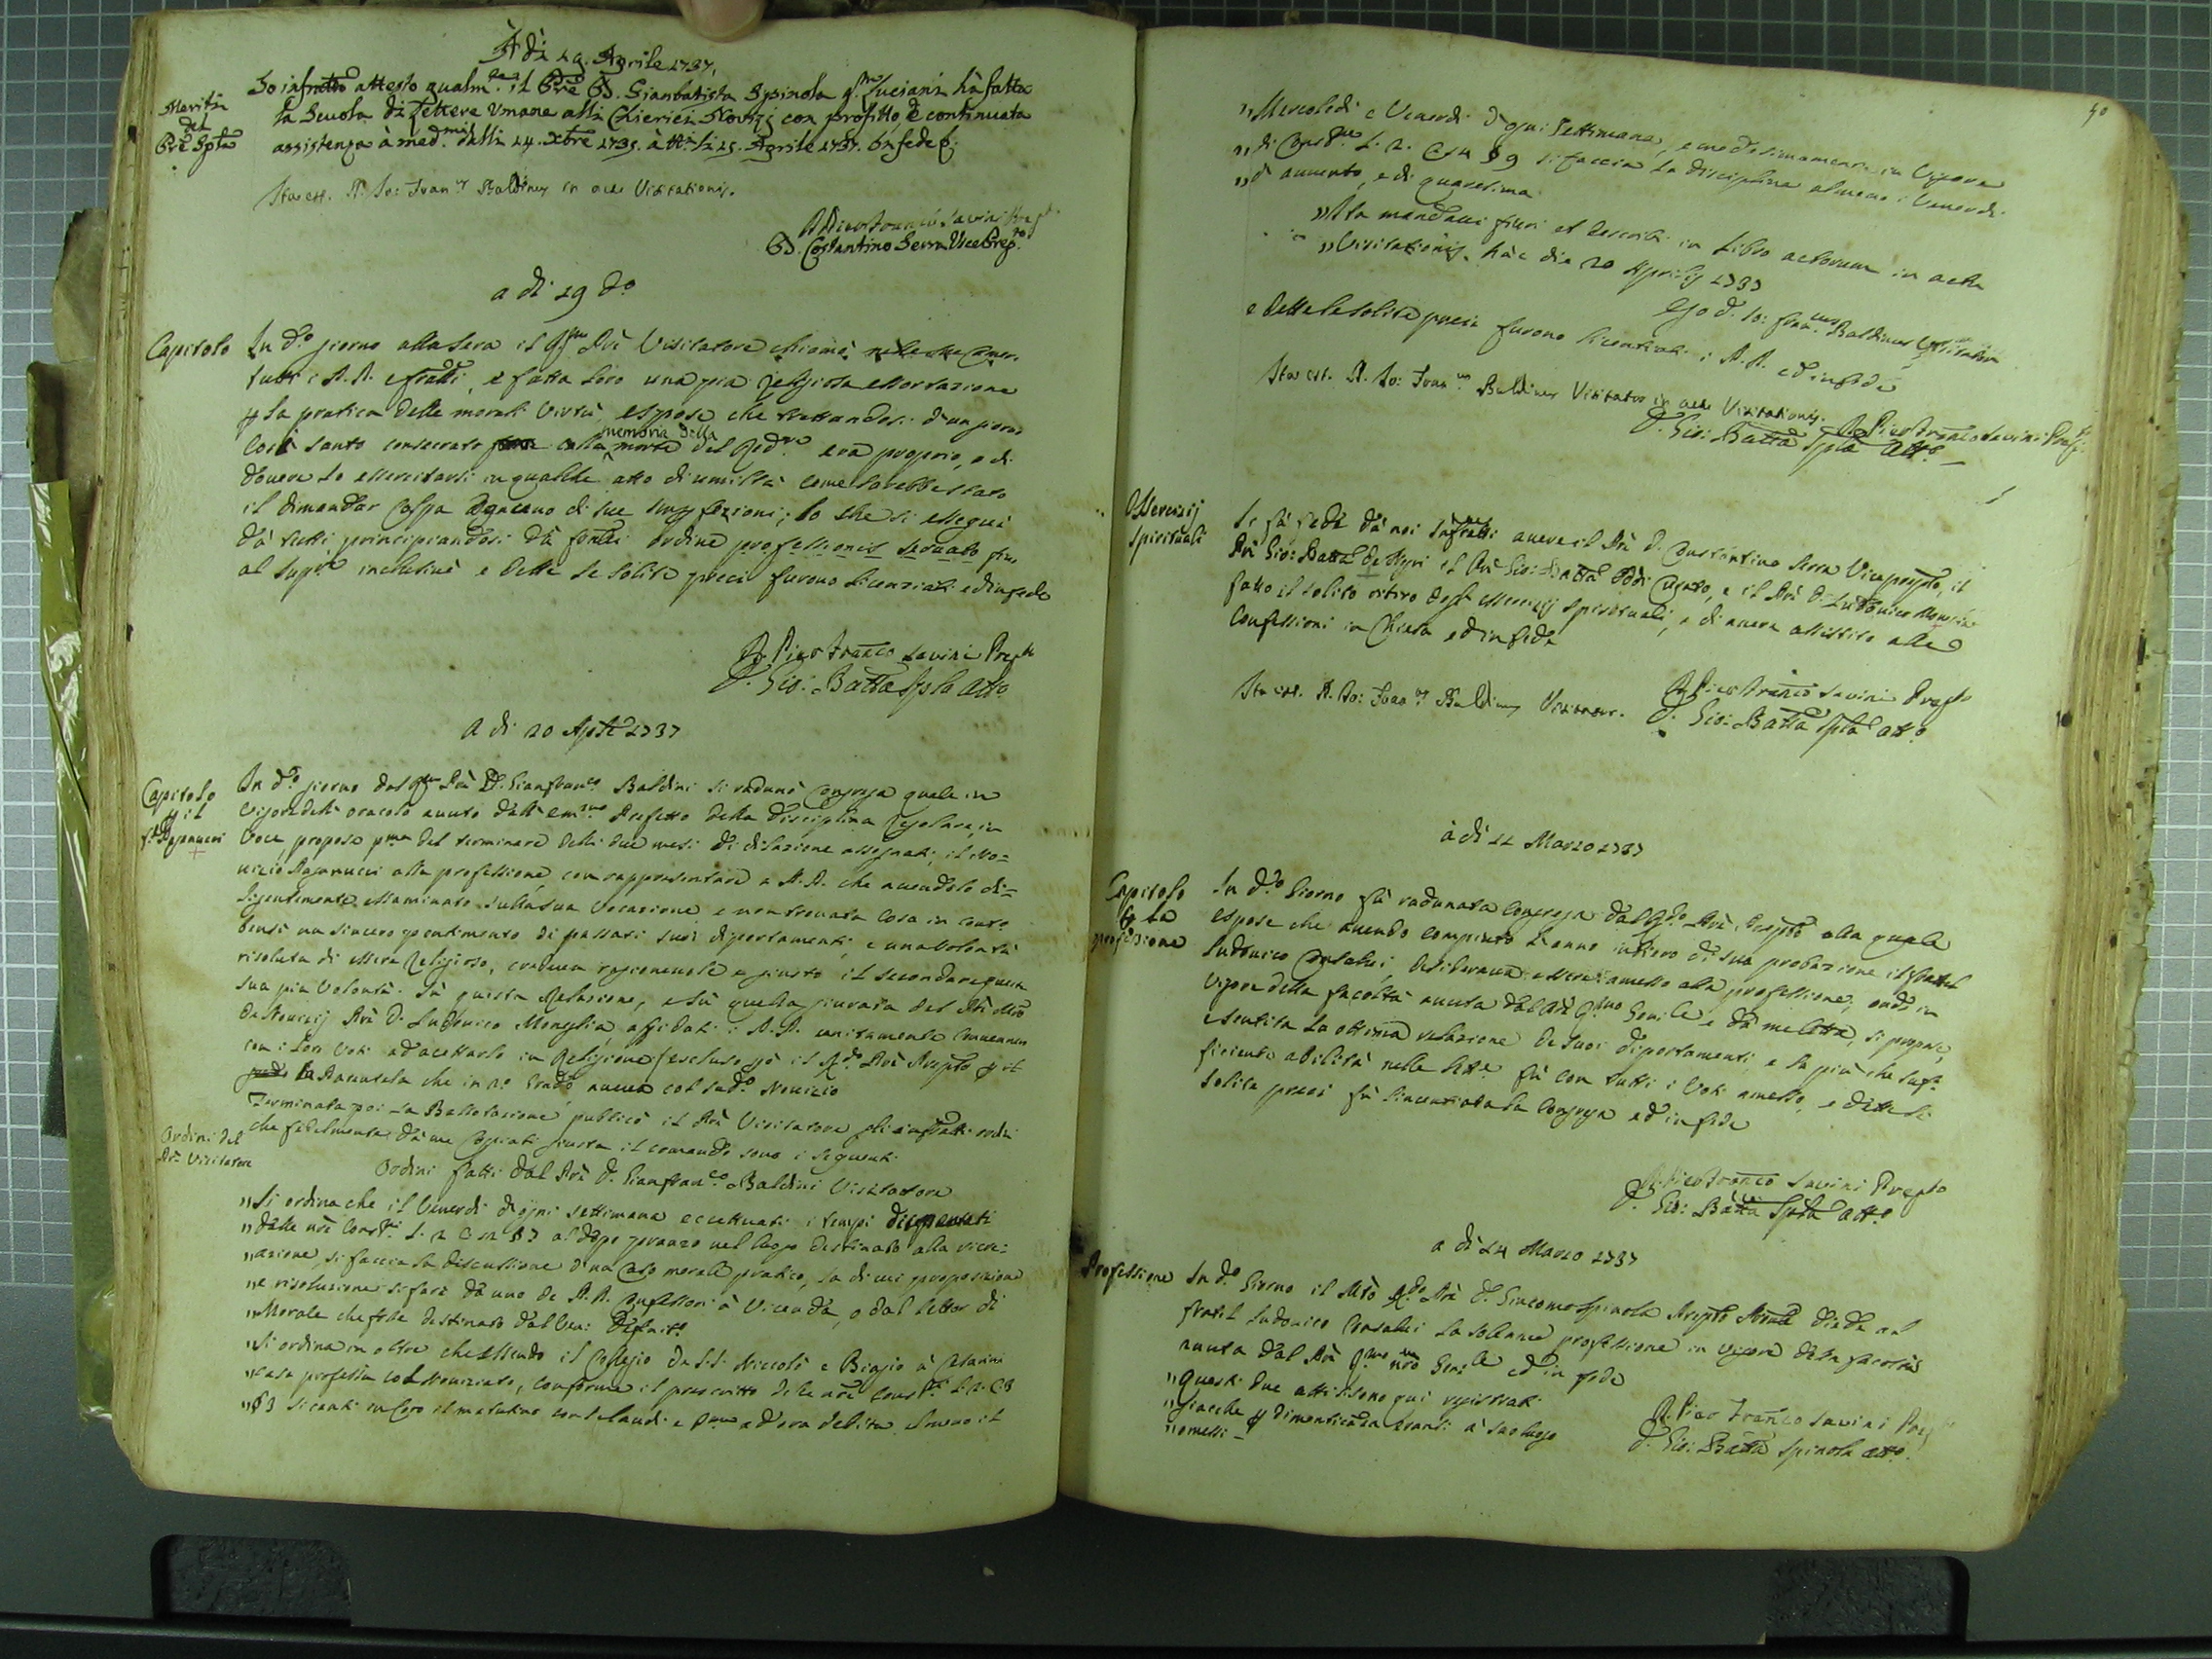 A dì 19. Aprile 1737.
Meriti
del
Pre Spla
Io infratto attesto qualm.te il Pre D. Gianbatista Spinola q. Luciani hà fatta
la Scuola di Lettere Umane alli Chierici Novizj con profitto, e continuata
assistenza à med.mi dalli 14. Xbre 1735. à tt.i li 19. Aprile 1737. In fede
Ita est. D. Io: Fran.us Baldinus in actu Visitationis.
D. Pier Franco Savini Prep.to
D. Costantino Serra Vice Prep.to
a di 19 d.o
Capitolo
In d.o giorno alla sera il Pre Visitatore chiamò
tutti i P.P. e fratti, e fatta loro una pia religiosa essortazione
la pratica delle morali virtù, espose che trattandosi d'un giorno
così santo consecrato alla memoria della morte del Red.re era proprio, e di
dovere lo essercitarsi in qualche atto di umiltà come sarebbe stato
il dimandar colpa ogneuno di sue imperfezioni; lo che si esseguì
dà tutti principiandosi dà ordine professionis servato fin
al Sup.re inclusive e dette le solite preci furono licenziati ed in fede
D. Pier Franco Savini Prep.to
D. Gio: Batta Spla Att.o
A di 20 Aple 1737
Capitolo
il
f. Paganucci
In d.o giorno dal Pre D. Gianfran.co Baldini si radunò Congrega quale in
vigore dell'oracolo avuto dall'em.mo Prefetto della disciplina Regolare in
voce propose p.ma del terminare delli due mesi di dilazione assegnati, il No=
vizio Paganucci alla professione con rappresentare a P.P. che avendolo di=
ligentemente essaminato sulla sua vocazione e non trovata cosa in cont.o
bensì un sincero pentimento di passati suoi diportamenti, e una volontà
risoluta di essere Religioso, credeva ragionevole e giusto il secondare questa
sua pia volontà. Sù questa Relazione, e sù quella giurata del Pre Mro
de Novizij Pre D. Ludovico Moneglia, affidati i P.P. unitamente convennero
con i loro voti ad accettarlo in Religione (escluso però il R.do Pre Prepto
la Parentela che in 2.o Grado aveva col sud.o Novizio
Terminata poi la Ballotazione publicò il Pre Visitatore gli infratti ordini
che fedelmente dà me copiati giusta il comando sono i seguenti
Ordini del
Pre Visitatore
Ordini fatti dal Pre D. Gianfran.co Baldini Visitatore
" Si ordina che il Venerdì di ogni settimana eccettuati i tempi dispensati
" dalle nre Const.ni L. 2 C. 12 § 7 al dopo pranzo nel luogo destinato alla ricre=
" azione, si faccia la discussione d'un caso morale pratico, la di cui proposizione
" e risoluzione si farà dà uno de P.P. Confessori à vicenda, o dal Lettor di
" Morale che sarà destinato dal Ven: Definit.o
" Si ordina in oltre che essendo il Collegio de S.S. Niccolò e Biagio à Cesarini
" casa professa col Noviziato, conforme il prescritto delle nre Const.ni L. 2. C. 3
" § 3 si canti in Coro il matutino con le laudi e p.ma ad ora debita almeno il
50
" Mercoledì e Venerdì d'ogni settimana, e medesimamente in vigore
" di Const.ne L. 2. C. 14 § 9 si faccia la disciplina almeno i Venerdì
" d'avvento, e di quaresima
" Ita mandavi fieri et describi in Libro actorum in actu
" Visitationis. hac die 20 Aprilis 1737
Ego D. Io: Fran.cus Baldinus Visitator
e dette le solite preci furono licentiati i P.P. ed in fede
Ita est. D. Io: Fran.us Baldinus Visitator in actu Visitationis.
D. Pier Franco Savini Prep.to
D. Gio: Batta Spla Att.o
Essercizij
spirituali
Si fà fede dà noi infratti avere il Pre D. Constantino Serra Viceprepto, il
Pre Gio: Batta De Negri il Pre Gio: Batta Oddi Curato, e il Pre D. Ludovico Moneglia
fatto il solito ritiro degl'essercizij spirituali, e di avere assistito alle
Confessioni in Chiesa ed in fede
Ita est. D. Io: Fran.us Baldinus Visitator.
D. Pier Franco Savini Prep.to
D. Gio: Batta Spla Att.o
à di 11 Marzo 1737
Capitolo
la
professione
In d.o Giorno fù radunata Congrega dal R.do Pre Prepto alla quale
espose che avendo compiuto l'anno intiero di sua probazione il fratel
Ludovico Consalvi, desiderava essere amesso alla professione; onde in
vigore della facoltà avuta dal Pre R.mo Gen.le e dà me letta, si propose,
e sentita la ottima relazione de suoi diportamenti, e la più che suf=
ficiente abilità nelle lett.e fù con tutti i voti amesso, e dette le
solite preci fù lincenziata la Congrega ed in fede
D. Pier Franco Savini Prepto
D. Gio: Batta Spla Att.o
a di 14 Marzo 1737
Professione
In d.o Giorno il Mto R.do Pre D. Giacomo Spinola Prepto Prle diede al
fratel Ludovico Consalvi la solenne professione in vigore della facoltà
avuta dal Pre R.mo nro Gen.le ed in fede
" Questi due atti si sono qui registrati
" giacche dimenticanza eransi à suo luogo
" omessi
D. Pier Franco Savini Prep
D. Gio: Batta Spinola Att.o